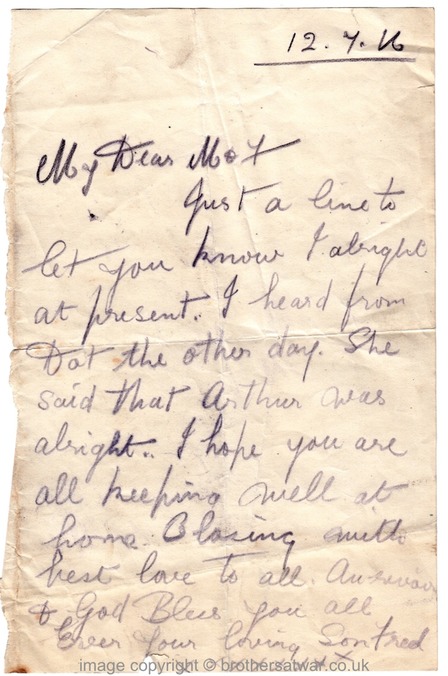 12.7.16
My Dear Mot
Just a line to
let you know I alright
at present. I heard from
Dot the other day. She
said that Arthur was
alright.. I hope you are
all keeping well at
home. Closing with
best love to all. Aurevoir
& God Bless you all
Ever your loving Son Fred
image copyright © brothersatwar.co.uk